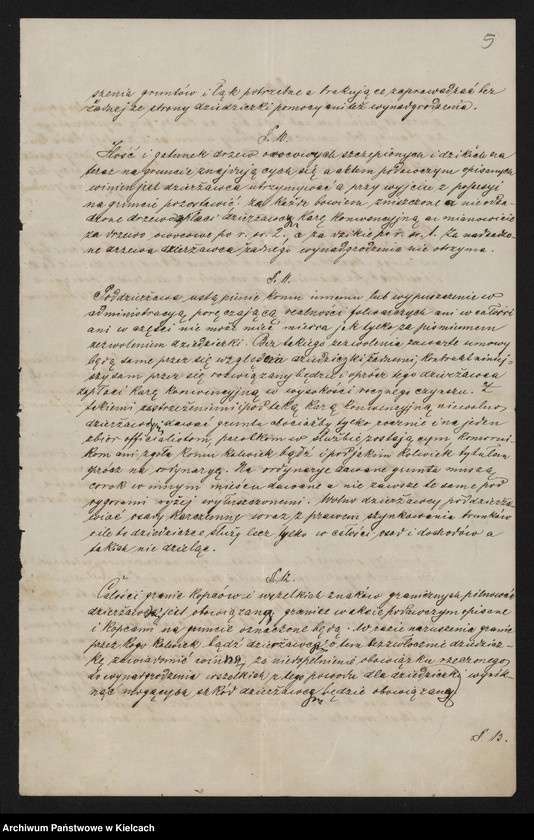 5
szenia gruntów i łąk potrzebne a brakujące zaprowadzać bez
żadnej ze strony dziedziczki pomocy ani też wynadgrodzenia.
§. 10.
Ilość i gatunek drzew owocowych szczepionych i dzikich na
teraz na gruncie znajdujących się a aktem podawczym opisanych
winien jest dzierżawca utrzymywać a przy wyjściu z posesyi
na gruncie pozostawić, za każde bowiem zniszczone a nie odsa-
dzone drzewo zapłaci dzierżawca karę konwencyjną a mianowicie
za drzewo owocowe po r. sr. 2, a za dzikie po r. sr. 1. Za nadsadzo-
ne drzewa dzierżawca żadnego wynadgrodzenia nie otrzyma.
§. 11.
Poddzierżawa ustąpienie komu innemu lub wypuszczenie w
administracyą, poręczającą realności folwarcznych ani w całości
ani w części nie może mieć miejsca jak tylko za piśmiennem
zezwoleniem dziedziczki. Bez takiego zezwolenia zawarte umowy
będą same przez się względem dziedziczki żadnemi, kontrakt niniej-
szy sam przez się rozwiązany będzie i oprócz tego dzierżawca
zapłaci karę konwencyjną w wysokości rocznego czynszu. Z
takiemi zastrzeżeniami i pod taką karą konwencyjną nie wolno
dzierżawcy dawać gruntu chociażby tylko rocznie i na jeden
zbiór officialistom, parobkom w służbie zostającym komorni-
kom ani zgoła komu kolwiek bądź i pod jakim kolwiek tytułem
prócz na ordynaryę. Na ordynaryę dawane grunta muszą
corok w innym miejscu dawane a nie zawsze te same pod
rygorami wyżej wyłuszczonemi. Wolno dzierżawcy poddzierża-
wiać osadę karczemną wraz z prawem szynkowania trunków
o ile to dziedziczce służy lecz tylko w całości osad i dochodów a
takich nie dzieląc.
§. 12.
Całości granic kopców i wszelkich znaków granicznych pilnować
dzierżawca jest obowiązany, granice w akcie podawczym opisane
i kopcami na gruncie oznaczone będą. W razie naruszenia granic
przez kogo kolwiek bądź dzierżawca o tem bezzwłocznie dziedzicz-
kę zawiadomić winien, za niedopełnienie obowiązku rzeczonego
do wynadgrodzenia wszelkich z tego powodu dla dziedziczki wynik-
nąć mogących szkód dzierżawca będzie obowiązany
§ 13.
Archiwum Państwowe w Kielcach